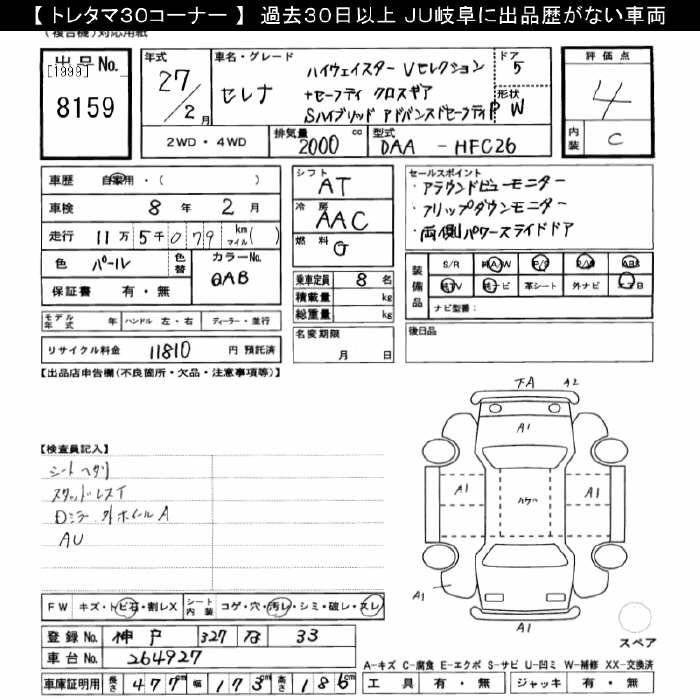 【 トレタマ30コーナー 】 過去30日以上 JU岐阜に出品歴がない車両
(複合機)対応用紙
出品No.
[1999]
8159
年式
27/2月
車名・グレード
セレナ
ハイウェイスター Vセレクション
+セーフティ クロスギア
Sハイブリッド アドバンスドセーフティP
ドア
5
形状
W
評価点
4
内装
C
2WD・4WD
排気量
2000 cc
型式
DAA - HFC26
車歴 自家用・( )
車検 8 年 2 月
走行 11万5千079 km マイル( )
色 パール 色替 カラーNo. QAB
保証書 有・無
シフト AT
冷房 AAC
燃料 G
乗車定員 8 名
積載量 kg
総重量 kg
セールスポイント
・アラウンドビューモニター
・フリップダウンモニター
・両側パワースライドドア
装備品
S/R 純A/W P/S P/W ABS
純TV 純ナビ 革シート 外ナビ エアB
ナビ型番:
モデル年式 年 ハンドル 左・右 ディーラー・並行
リサイクル料金 11810 円 預託済
名変期限 月 日
後日品
【出品店申告欄(不良箇所・欠品・注意事項等)】
【検査員記入】
シートヘタリ
スタッドレスT
Dミラー 外ホイールA
AU
FA A2
A1
A1 A1
A1
A1
スペア
FW キズ・トビ石・割レX シート内装 コゲ・穴・汚レ・シミ・破レ・スレ
登録No. 神戸 327 な 33
車台No. 264927
車庫証明用 長さ 477cm 幅 173cm 高さ 186cm
A-キズ C-腐食 E-エクボ S-サビ U-凹ミ W-補修 XX-交換済
工具 有・無 ジャッキ 有・無